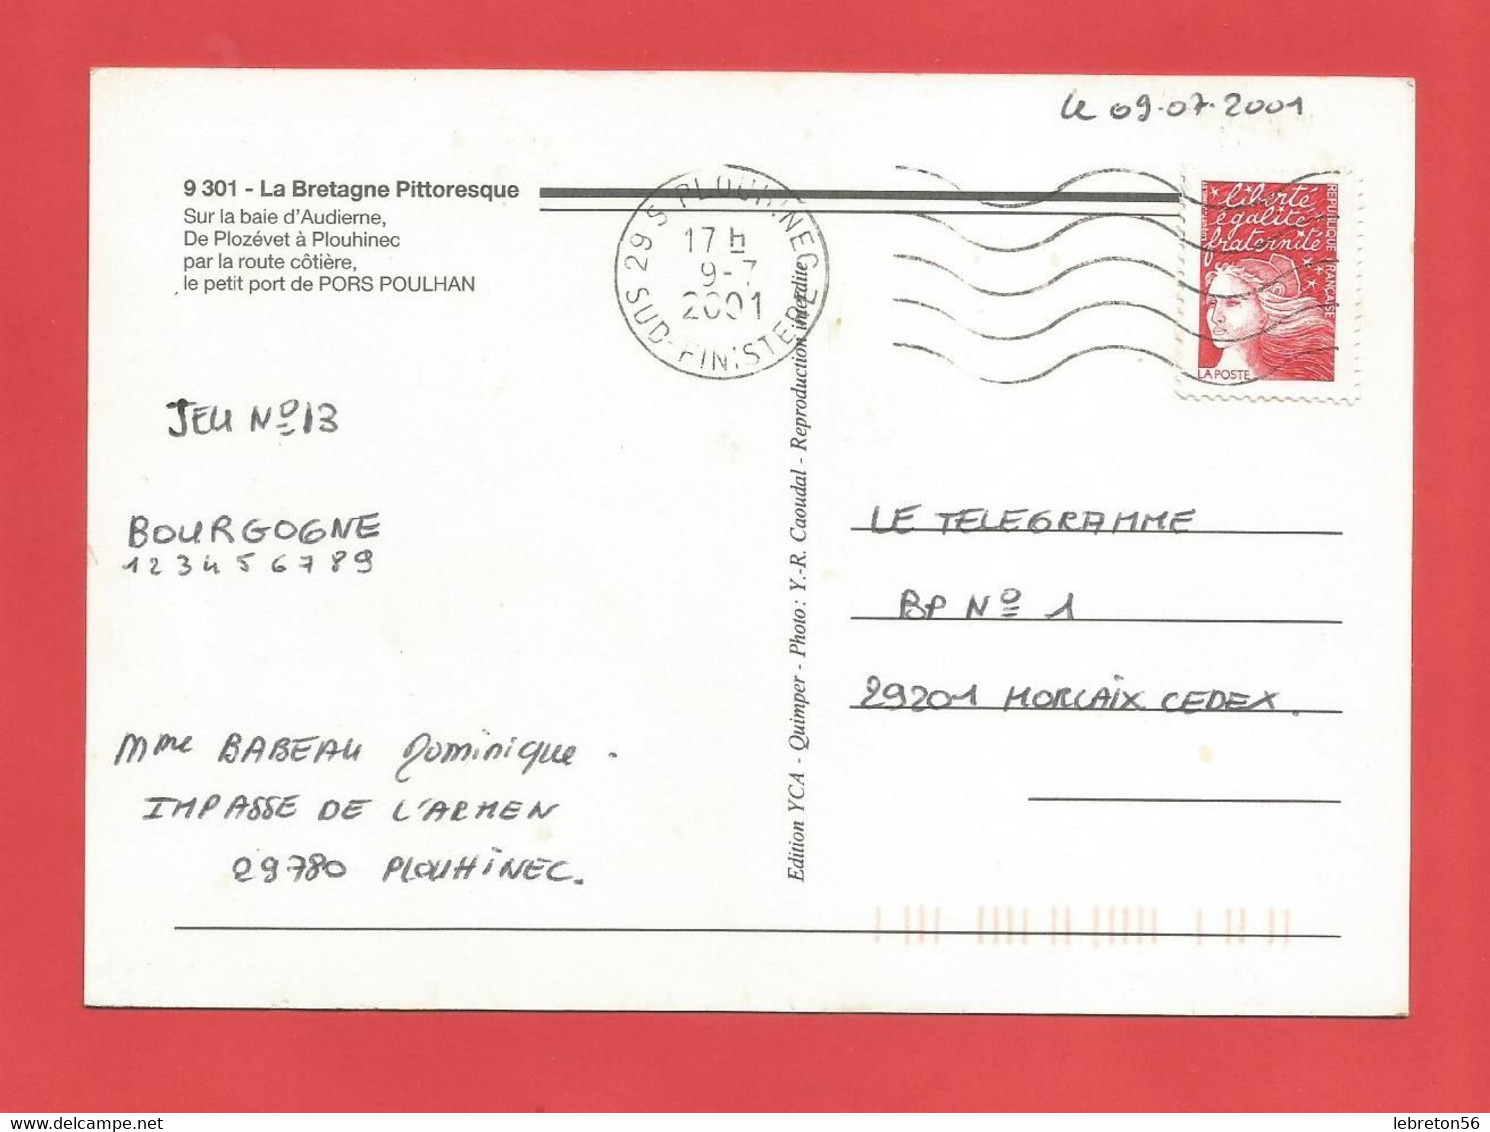 le 09.07.2001
9 301 - La Bretagne Pittoresque
Sur la baie d'Audierne,
De Plozévet à Plouhinec
par la route côtière,
le petit port de PORS POULHAN
29 S PLOUHINEC
17 H
9-7
2001
SUD-FINISTERE
liberté
égalité
fraternité
REPUBLIQUE FRANÇAISE
LA POSTE
JEU Nº 13
BOURGOGNE
1 2 3 4 5 6 7 8 9
Mme BABEAU Dominique.
IMPASSE DE L'ARMEN
29780 PLOUHINEC.
Edition YCA - Quimper - Photo : Y.-R. Caoudal - Reproduction interdite
LE TELEGRAMME
BP Nº 1
29201 MORLAIX CEDEX.
lebreton56